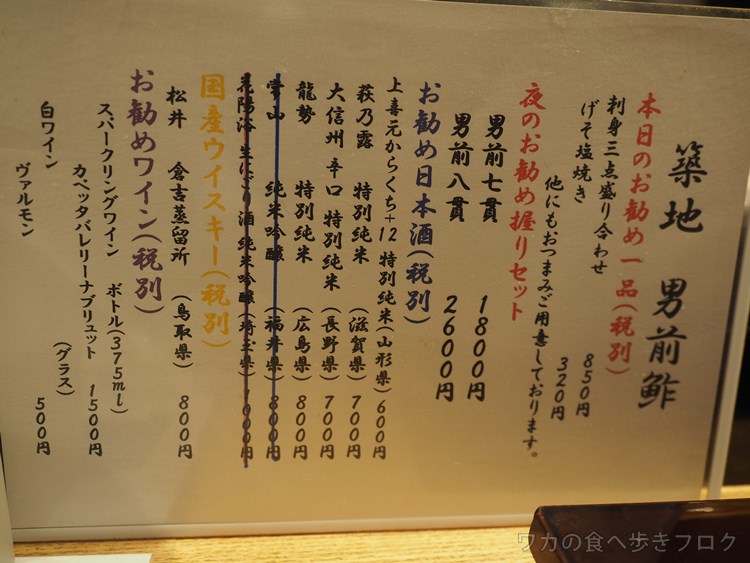 築地　男前鮓
本日のお勧め一品(税別)
刺身三点盛り合わせ　850円
げそ塩焼き　320円
他にもおつまみご用意しております。
夜のお勧め握りセット
男前七貫　1800円
男前八貫　2600円
お勧め日本酒(税別)
上喜元からくち+12 特別純米(山形県)600円
萩乃露　特別純米　(滋賀県)　700円
大信州 辛口 特別純米 (長野県) 700円
龍勢　特別純米　(広島県)　800円
常山　純米吟醸　(福井県)　800円
花陽浴 生にごり酒 純米吟醸(埼玉県)1000円
国産ウイスキー(税別)
松井　倉吉蒸留所　(鳥取県)　800円
お勧めワイン(税別)
スパークリングワイン　ボトル(375ml)
カペッタバレリーナブリュット　1500円
白ワイン　(グラス)
ヴァルモン　500円
ワカの食べ歩きブログ